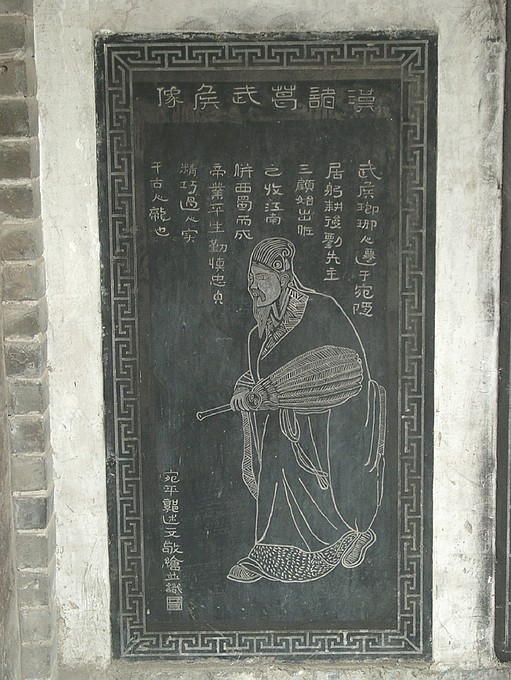 漢諸葛武侯像
武侯瑯琊人遷于宛隱
居躬耕後劉先主
三顧始出
之收江南
併西蜀而成
帝業平生勤慎忠貞
精巧過人實
千古人龍也
宛平郭述三敬繪並識